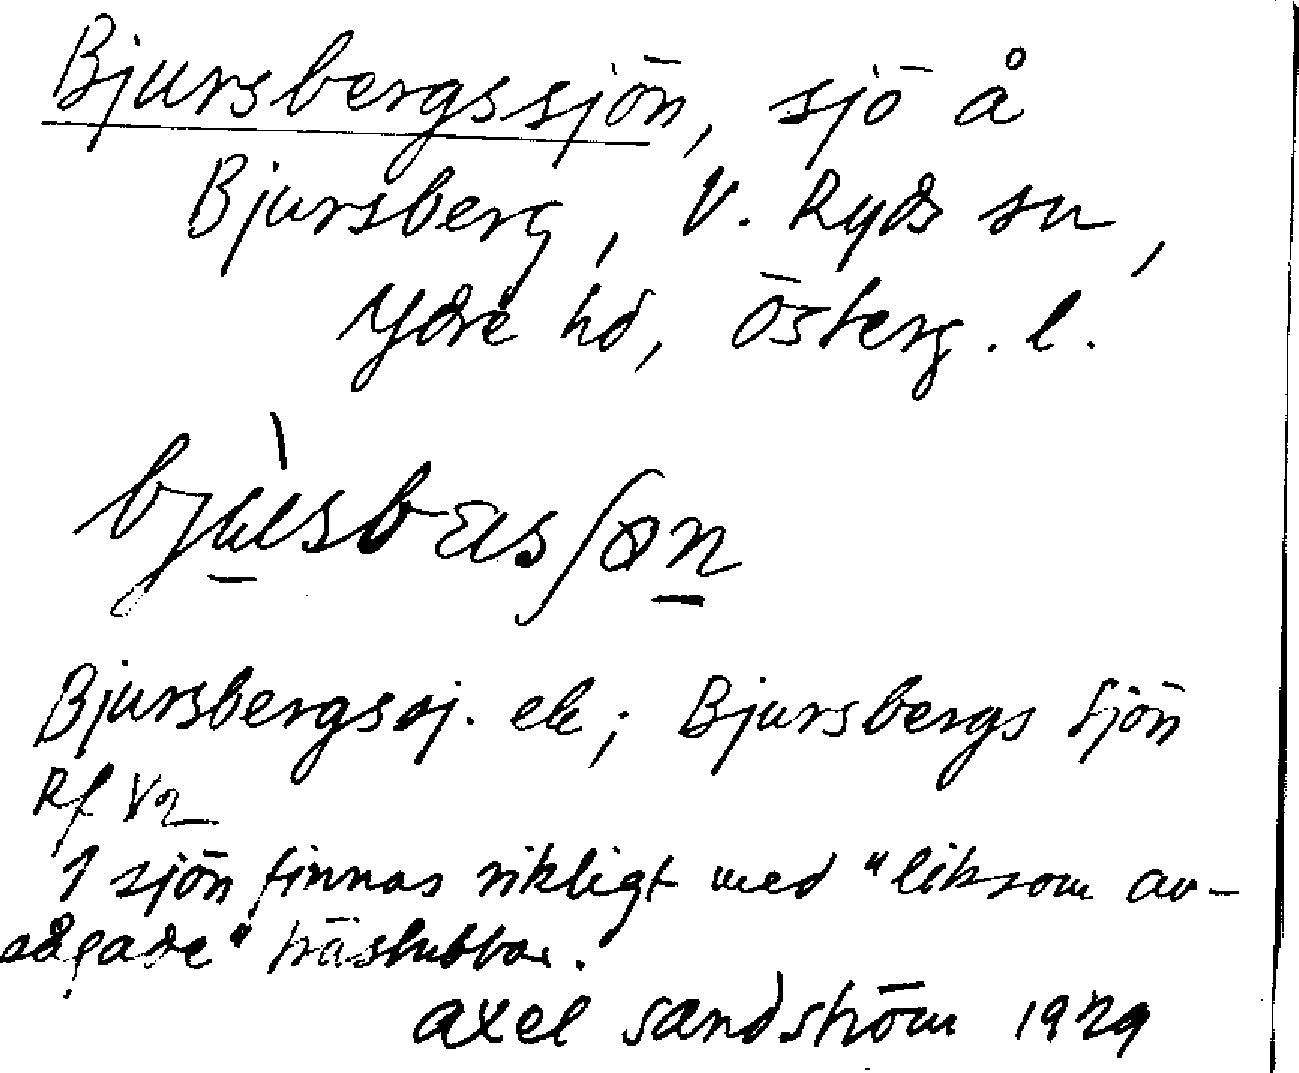 Bjursbergssjön, sjö å
Bjursberg, V. Ryds sn,
Ydre hd, Österg. l.
Bjursbergssj. ek; Bjursbergs Sjön
Rf V2
I sjön finnas rikligt med "liksom av-
sågade" trästubbar.
Axel Sandström 1929